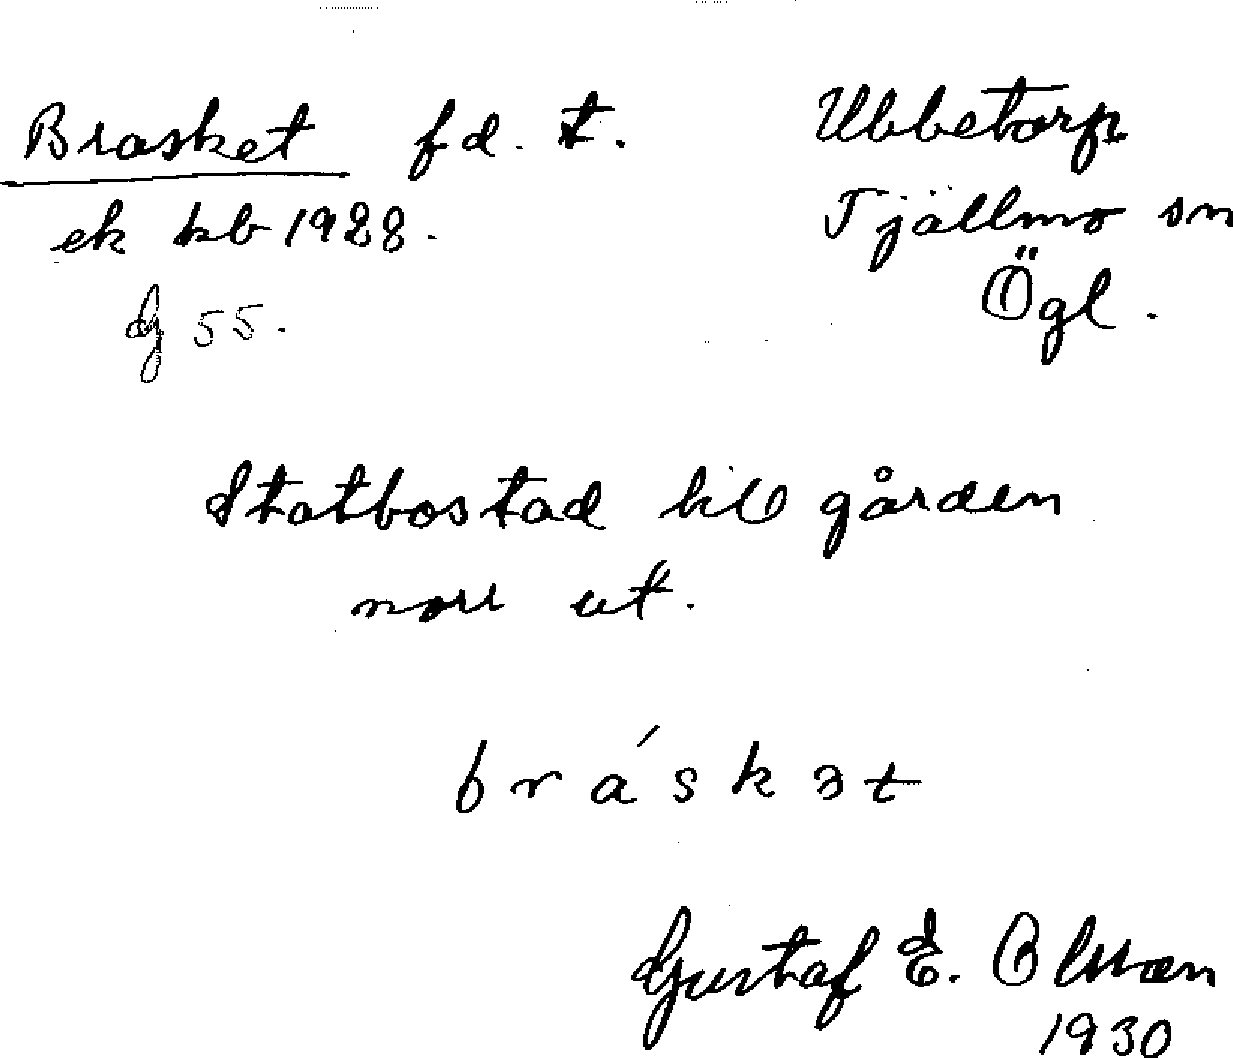 Brasket fd. t. Ubbetorp
ek kb 1928. Tjällmo sn
G 55. Ögl.
Statbostad till gården
norr ut.
bráskət
Gustaf E. Olsson
1930